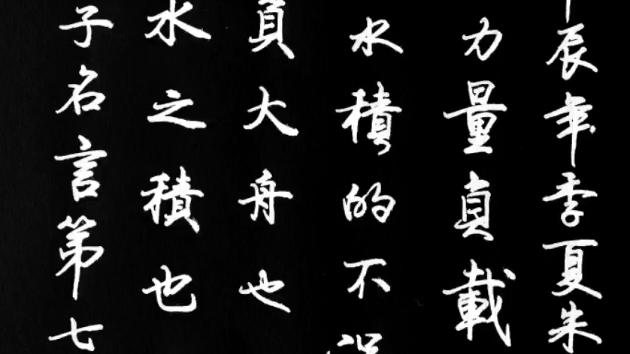 子名言第七
水之積也
負大舟也
水積的不
力量負載
辰年季夏朱